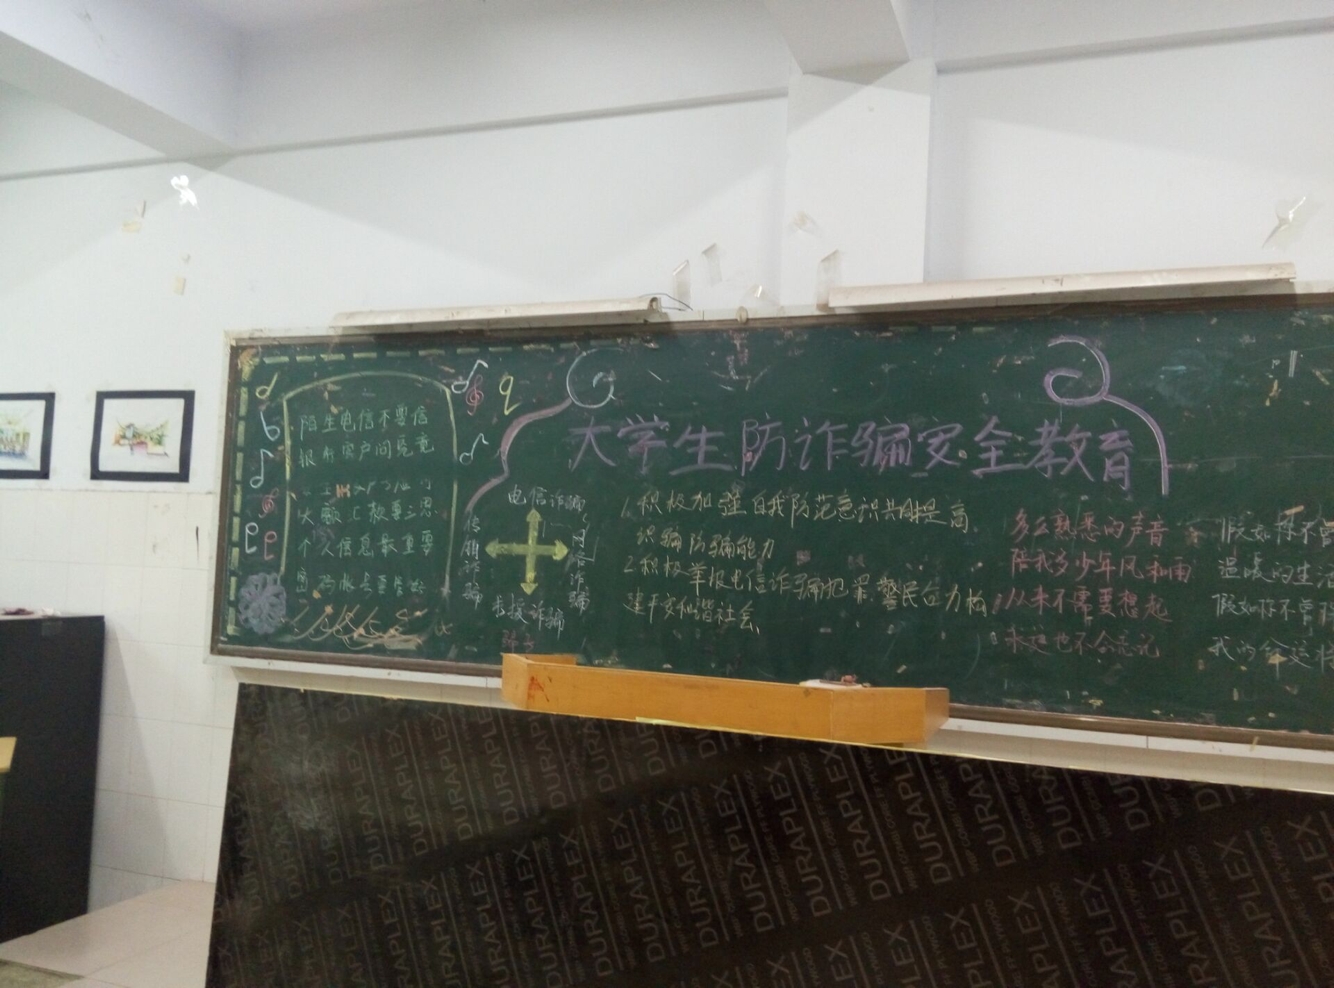 大学生防诈骗安全教育
陌生电信不要信
报市客户问究竟
个人信息最重要
电信诈骗
传销诈骗
网络诈骗
1.积极加强自我防范意识共同提高
识骗防骗能力
2.积极举报电信诈骗犯罪警民合力构
建平安和谐社会
多么熟悉的声音
陪我多少年风和雨
从来不需要想起
永远也不会忘记
假如你不曾
温暖的生活
假如你不曾
我的命运将
DURAPLEX